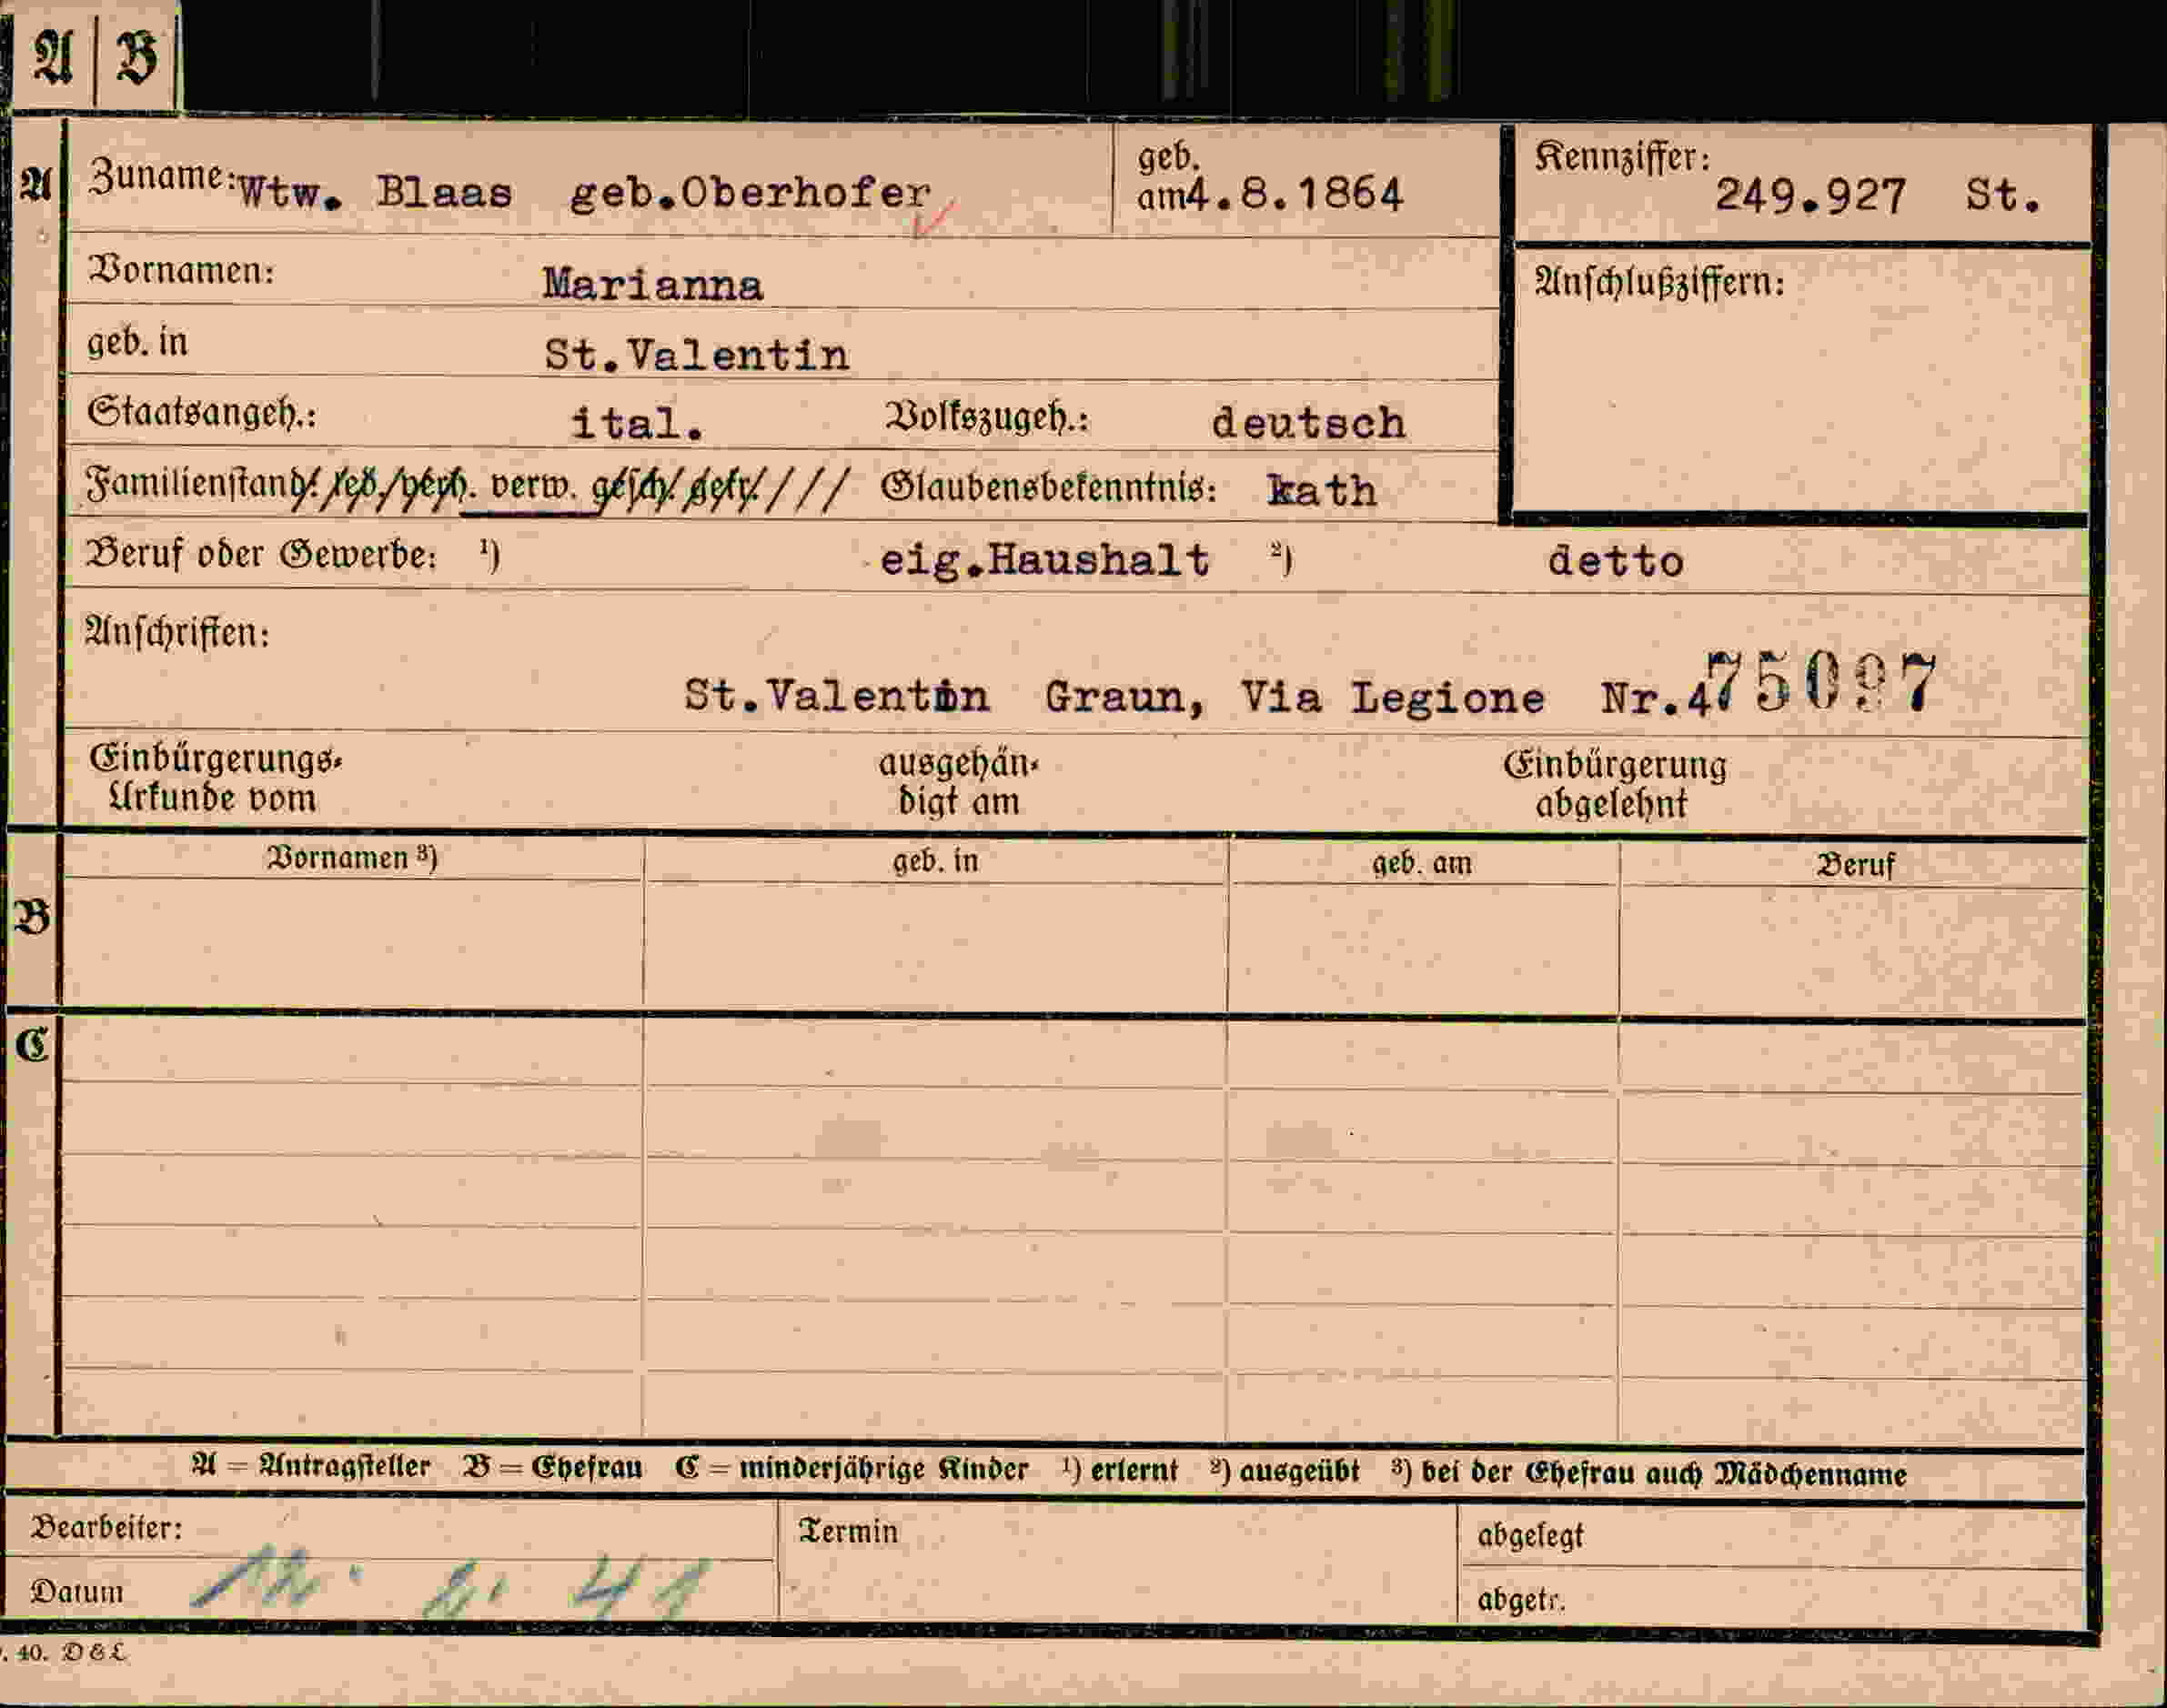 A | B
A
Zuname: Wtw. Blaas geb.Oberhofer
geb.
am 4.8.1864
Kennziffer:
249.927 St.
Vornamen: Marianna
Anschlußziffern:
geb. in St.Valentin
Staatsangeh.: ital. Volkszugeh.: deutsch
Familienstand: led. verh. verw. gesch. getr. / / / Glaubensbekenntnis: kath
Beruf oder Gewerbe: ¹) eig.Haushalt ²) detto
Anschriften:
St.Valentin Graun, Via Legione Nr.4 75097
Einbürgerungs-
Urkunde vom
ausgehän-
digt am
Einbürgerung
abgelehnt
B
Vornamen ³) geb. in geb. am Beruf
C
A = Antragsteller B = Ehefrau C = minderjährige Kinder ¹) erlernt ²) ausgeübt ³) bei der Ehefrau auch Mädchenname
Bearbeiter:
Termin
abgelegt
Datum 12. 2. 41
abgetr.
. 40. D & L